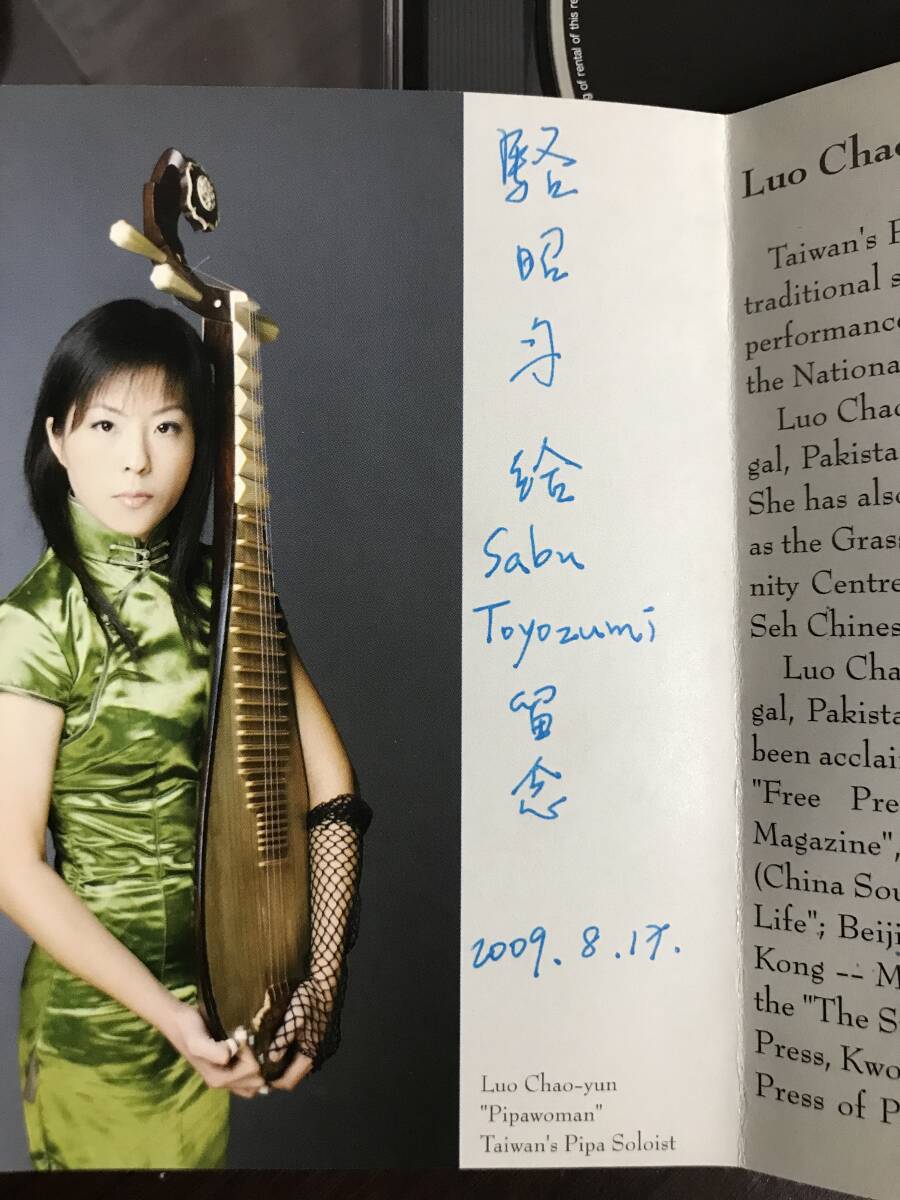 g of rental of this re
駱昭勻
給
Sabu
Toyozumi
留念
2009. 8. 17.
Luo Chao-yun
"Pipawoman"
Taiwan's Pipa Soloist
Luo Chao
Taiwan's
traditional s
performance
the Nationa
Luo Chao
gal, Pakista
She has also
as the Gras
nity Centre
Seh Chines
Luo Cha
gal, Pakista
been acclai
"Free Pre
Magazine",
(China Sou
Life"; Beiji
Kong -- M
the "The S
Press, Kwo
Press of P